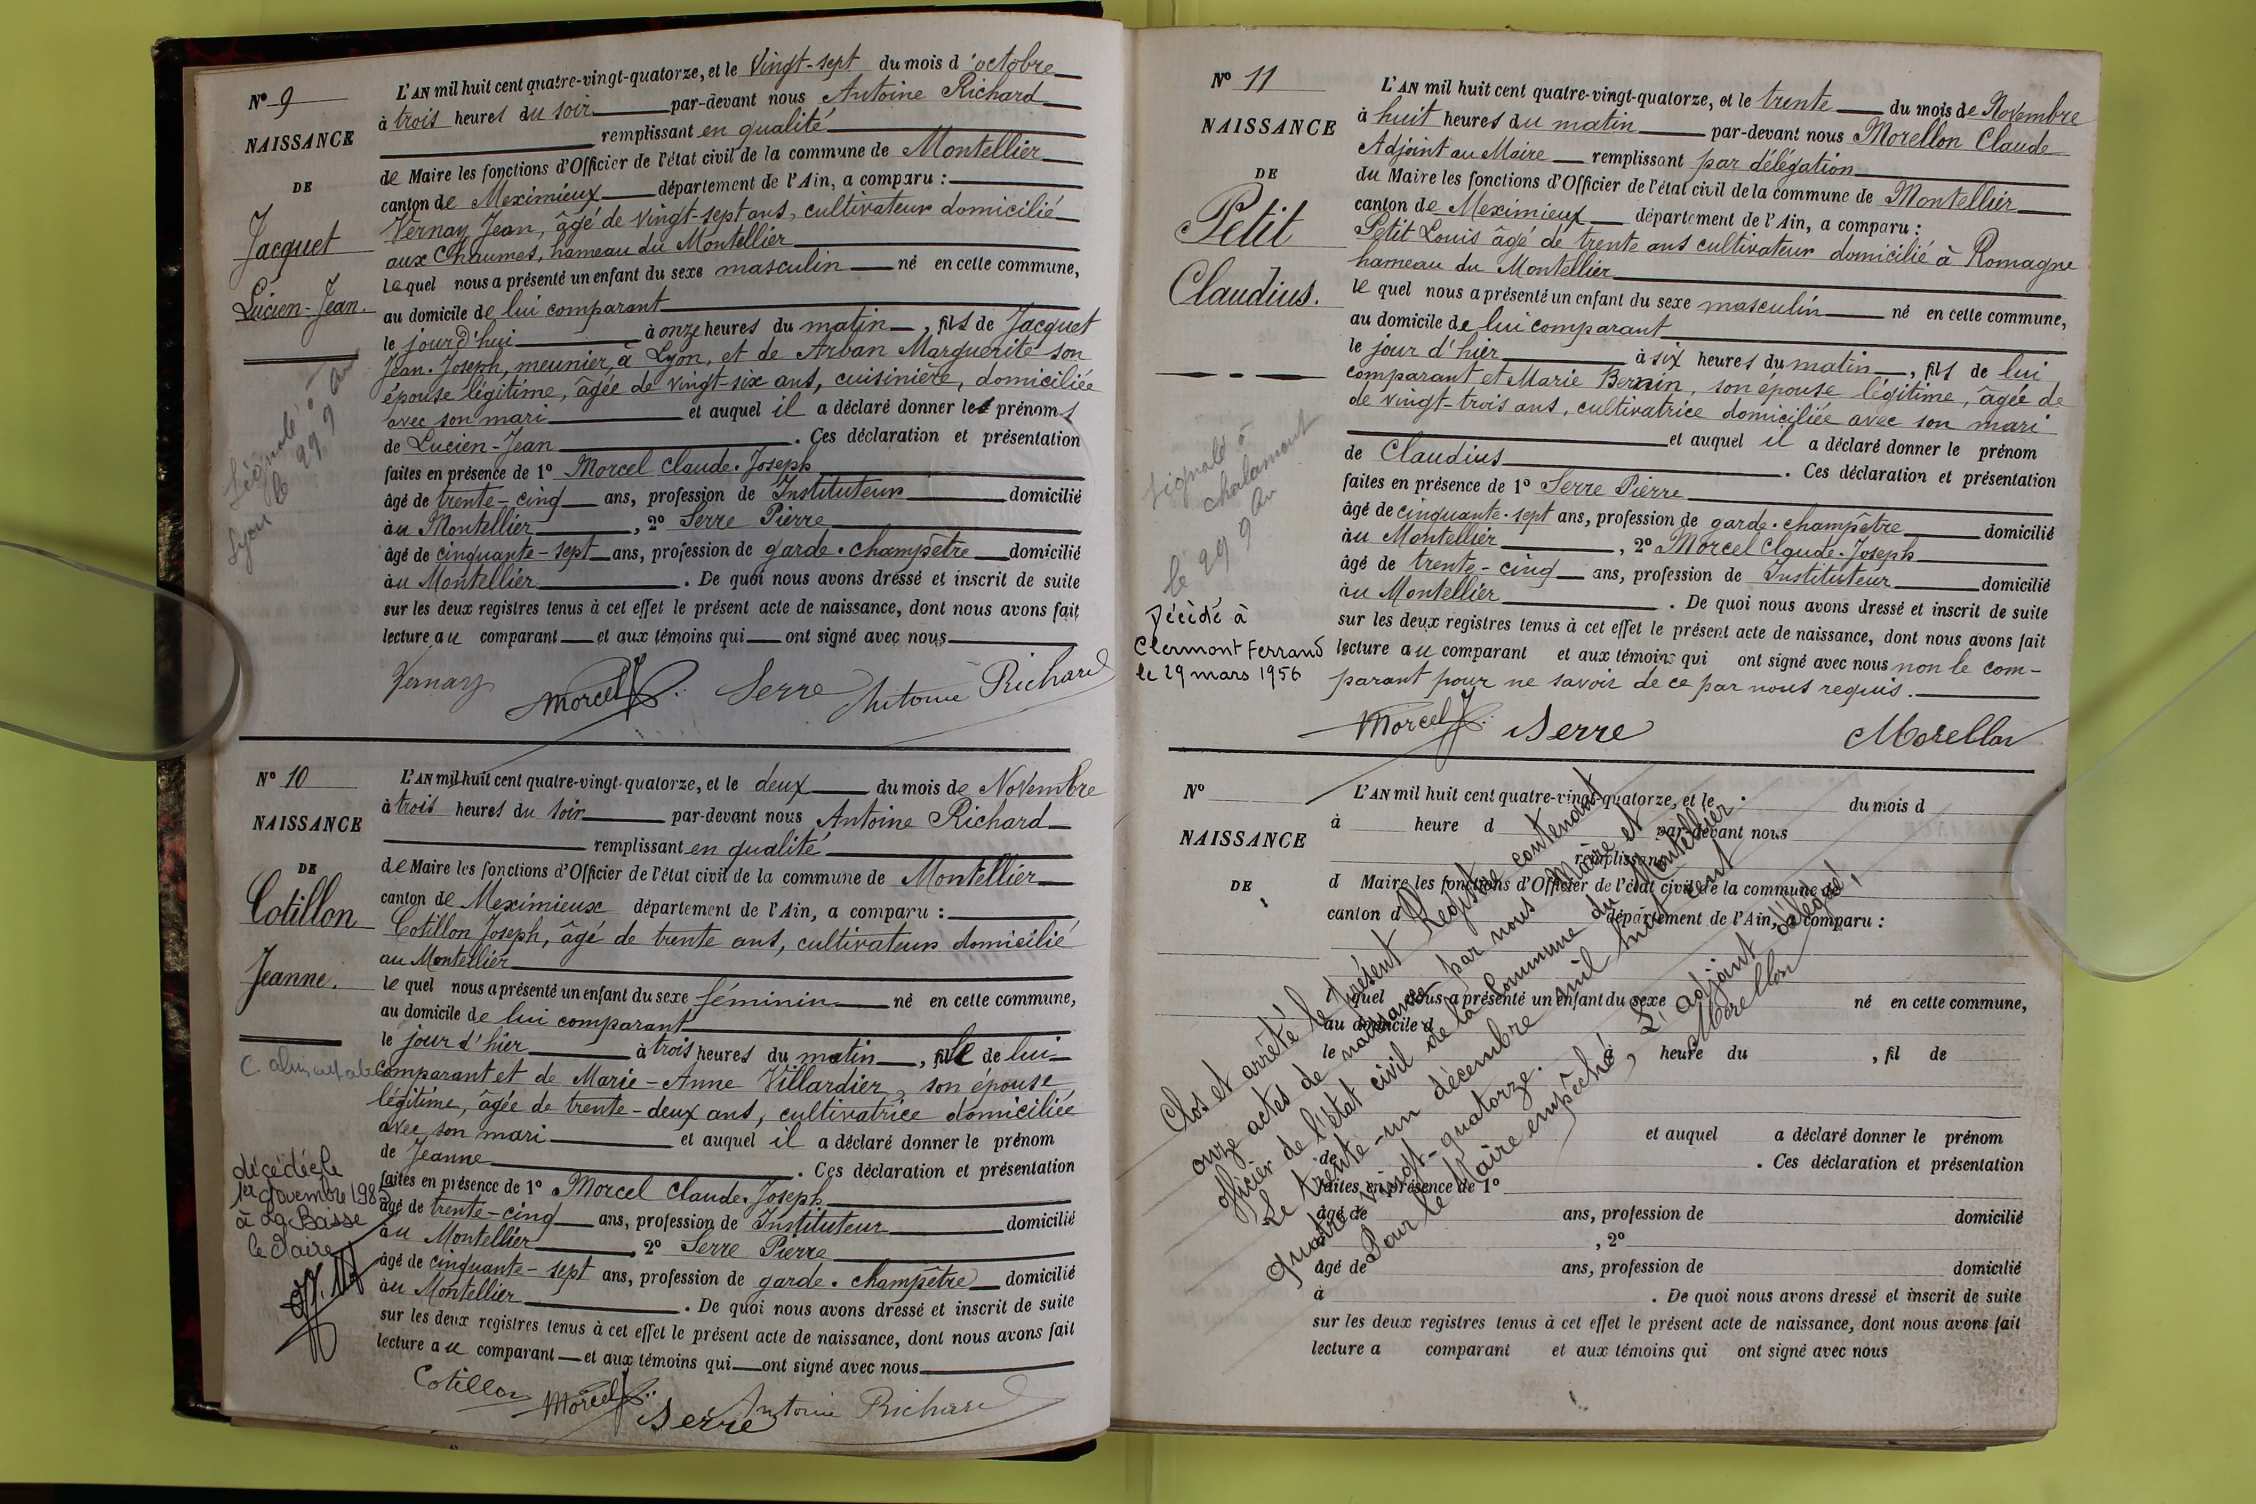 N° 9
NAISSANCE
DE
Jacquet
Lucien-Jean.
L'AN mil huit cent quatre-vingt-quatorze, et le Vingt-sept du mois d'octobre
à trois heures du soir par-devant nous Antoine Richard
remplissant en qualité
de Maire les fonctions d'Officier de l'état civil de la commune de Montellier
canton de Meximieux département de l'Ain, a comparu :
Vernay Jean, âgé de vingt-sept ans, cultivateur domicilié
aux Chaumes, hameau du Montellier
lequel nous a présenté un enfant du sexe masculin né en cette commune,
au domicile de lui comparant
le jourd'hui à onze heures du matin, fils de Jacquet
Jean-Joseph, meunier, à Lyon, et de Arban Marguerite son
épouse légitime, âgée de vingt-six ans, cuisinière, domiciliée
avec son mari et auquel il a déclaré donner les prénoms
de Lucien-Jean. Ces déclaration et présentation
faites en présence de 1° Morcel Claude-Joseph
âgé de trente-cinq ans, profession de Instituteur domicilié
au Montellier, 2° Serre Pierre
âgé de cinquante-sept ans, profession de garde-champêtre domicilié
au Montellier. De quoi nous avons dressé et inscrit de suite
sur les deux registres tenus à cet effet le présent acte de naissance, dont nous avons fait
lecture au comparant et aux témoins qui ont signé avec nous
Vernay Morcel Serre Antoine Richard
N° 10
NAISSANCE
DE
Cotillon
Jeanne.
décédée le
1er Novembre
à La Boisse
le Maire
L'AN mil huit cent quatre-vingt-quatorze, et le deux du mois de Novembre
à trois heures du soir par-devant nous Antoine Richard
remplissant en qualité
de Maire les fonctions d'Officier de l'état civil de la commune de Montellier
canton de Meximieux département de l'Ain, a comparu :
Cotillon Joseph, âgé de trente ans, cultivateur domicilié
au Montellier
lequel nous a présenté un enfant du sexe féminin né en cette commune,
au domicile de lui comparant
le jour d'hier à trois heures du matin, fille de lui
comparant et de Marie-Anne Villardier, son épouse
légitime, âgée de trente-deux ans, cultivatrice domiciliée
avec son mari et auquel il a déclaré donner le prénom
de Jeanne. Ces déclaration et présentation
faites en présence de 1° Morcel Claude-Joseph
âgé de trente-cinq ans, profession de Instituteur domicilié
au Montellier, 2° Serre Pierre
âgé de cinquante-sept ans, profession de garde-champêtre domicilié
au Montellier. De quoi nous avons dressé et inscrit de suite
sur les deux registres tenus à cet effet le présent acte de naissance, dont nous avons fait
lecture au comparant et aux témoins qui ont signé avec nous
Cotillon Morcel Serre Antoine Richard
N° 11
NAISSANCE
DE
Petit
Claudius.
Signalé à
Chalamont
Décédé à
Clermont Ferrand
le 29 mars 1956
L'AN mil huit cent quatre-vingt-quatorze, et le trente du mois de Novembre
à huit heures du matin par-devant nous Morellon Claude
Adjoint au Maire remplissant par délégation
du Maire les fonctions d'Officier de l'état civil de la commune de Montellier
canton de Meximieux département de l'Ain, a comparu :
Petit Louis âgé de trente ans cultivateur domicilié à Romagne
hameau du Montellier
lequel nous a présenté un enfant du sexe masculin né en cette commune,
au domicile de lui comparant
le jour d'hier à six heures du matin, fils de lui
comparant et Marie Bernin, son épouse légitime, âgée de
de vingt-trois ans, cultivatrice domiciliée avec son mari
et auquel il a déclaré donner le prénom
de Claudius. Ces déclaration et présentation
faites en présence de 1° Serre Pierre
âgé de cinquante-sept ans, profession de garde-champêtre domicilié
au Montellier, 2° Morcel Claude-Joseph
âgé de trente-cinq ans, profession de Instituteur domicilié
au Montellier. De quoi nous avons dressé et inscrit de suite
sur les deux registres tenus à cet effet le présent acte de naissance, dont nous avons fait
lecture au comparant et aux témoins qui ont signé avec nous non le com-
parant pour ne savoir de ce par nous requis.
Morcel Serre Morellon
N°
NAISSANCE
DE
L'AN mil huit cent quatre-vingt-quatorze, et le du mois d
à heure d par-devant nous
remplissant
d Maire les fonctions d'Officier de l'état civil de la commune de
canton d département de l'Ain, a comparu :
l quel nous a présenté un enfant du sexe né en cette commune,
au domicile d
le à heure du , fil de
et auquel a déclaré donner le prénom
de . Ces déclaration et présentation
faites en présence de 1°
âgé de ans, profession de domicilié
à , 2°
âgé de ans, profession de domicilié
à . De quoi nous avons dressé et inscrit de suite
sur les deux registres tenus à cet effet le présent acte de naissance, dont nous avons fait
lecture a comparant et aux témoins qui ont signé avec nous
Clos et arrêté le présent Registre contenant
onze actes de naissance par nous Maire et
officier de l'état civil de la Commune du Montellier
Le trente-un décembre mil huit cent
quatre-vingt-quatorze.
Pour le Maire empêché, L'adjoint délégué,
Morellon